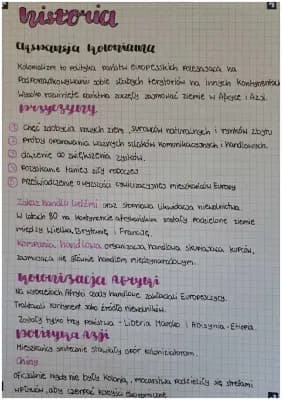 Historia
Ekspansja kolonialna
Kolonializm to polityka państw europejskich polegająca na
podporządkowywaniu sobie słabych terytoriów na innych kontynentach
państwa zaczęły zajmować ziemie w Afryce i Azji.
Przyczyny
① Chęć zdobycia nowych ziem, surowców naturalnych i rynków zbytu
② Próby opanowania ważnych szlaków komunikacyjnych i handlowych.
③ dążenie do zwiększenia zysków.
④ Pozyskanie taniej siły roboczej
⑤ Przeświadczenie o wyższości cywilizacyjnej mieszkańców Europy
Zakaz handlu ludźmi oraz stopniowa likwidacja niewolnictwa.
W latach 80 na kontynencie afrykańskim zostały podzielone ziemie
między Wielką Brytanię i Francję.
Kompania handlowa organizacja handlowa skupiająca kupców,
zajmująca się głównie handlem międzynarodowym.
Kolonizacja Afryki
Na wybrzeżach Afryki osady handlowe zakładali Europejczycy.
Traktowali kontynent jako źródło niewolników.
Zostały tylko trzy państwa - Liberia Maroko i Abisynia - Etiopia.
Polityka Azji
Mieszkańcy skutecznie stawiały opór kolonizatorom.
Chiny
oficjalnie nigdy nie były kolonią, mocarstwa podzieliły się strefami
wpływów, aby czerpać korzyści ekonomiczne